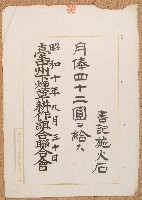 書記施火石
月俸四十二圓ヲ給ス
昭和十年九月三十日
臺中州下煙草耕作組合聯合會